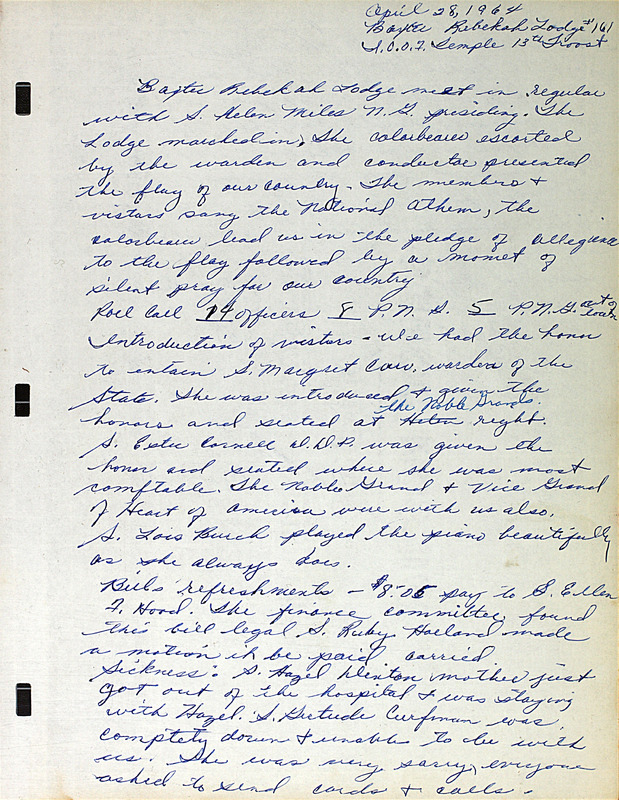 April 28, 1964
Baxter Rebekah Lodge #161
I.O.O.F. Temple 13th Troost
Baxter Rebekah Lodge met in regular
with S. Helen Miles N.G. presiding. The
Lodge marched in, The colorbearer escorted
by the warden and conductor presented
the flag of our country - The members +
vistors sang the National Athem, the
colorbearer lead us in the pledge of allegiance
to the flag followed by a momet of
silent pray for our country
Roll Call 14 officers 8 P.N.G. 5 P.N.G. out of town
Introduction of vistors - We had the honor
to entain S. Margret Carr, warden of the
State. She was introduced + given the
honors and seated at the Noble Grands right.
S. Ester Cornell D.D.P. was given the
honor and seated where she was most
comftable. The Noble Grand + Vice Grand
of Heart of America were with us also.
S. Lois Burch played the piano beautifully
as she always does.
Bills refreshments - $8.05 pay to S. Ellen
F. Hood. The finance committee found
this bill legal S. Ruby Holland made
a motion it be paid carried
Sickness: S. Hazel Hinton mother just
got out of the hospital + was staying
with Hazel. S. Gertude Curfman was
complety down + unable to be with
us. She was very sorry, everyone
asked to send cards + calls.